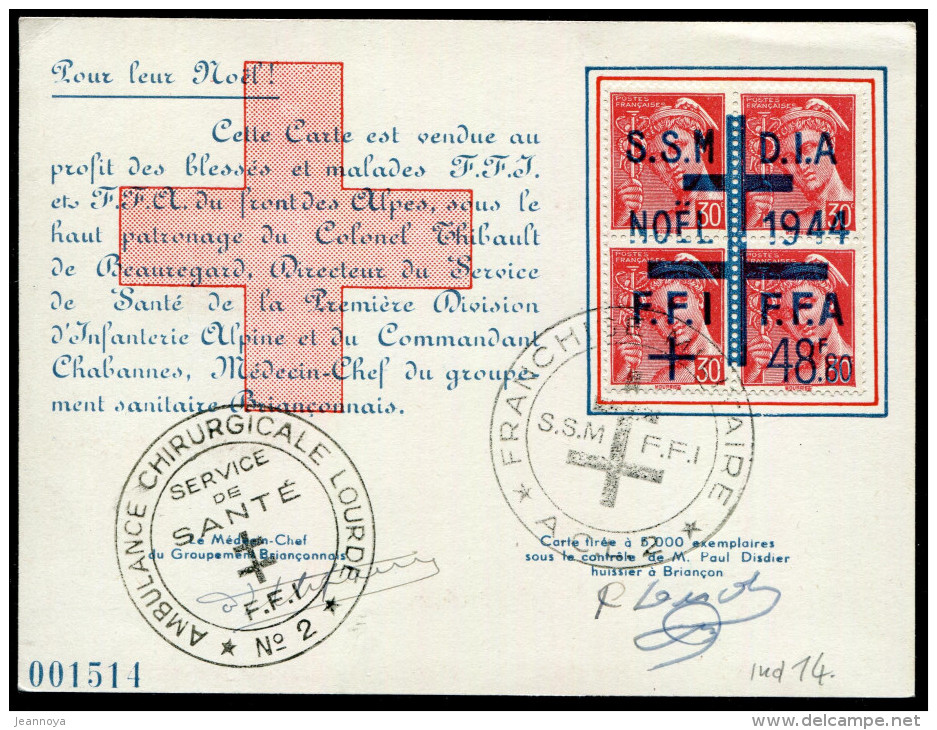 Pour leur Noël !
Cette Carte est vendue au
profit des blessés et malades F.F.I.
et F.F.A. du front des Alpes, sous le
haut patronage du Colonel Thibault
de Beauregard, Directeur du Service
de Santé de la Première Division
d'Infanterie Alpine et du Commandant
Chabannes, Médecin-Chef du groupe-
ment sanitaire Briançonnais.
POSTES FRANÇAISES
POSTES FRANÇAISES
S.S.M D.I.A
30 30
NOËL 1944
POSTES FRANÇAISES
POSTES FRANÇAISES
F.F.I F.F.A
30 48.F80
FRANCHISE MILITAIRE
S.S.M F.F.I
A.C.L 2
AMBULANCE CHIRURGICALE LOURDE
SERVICE
DE
SANTÉ
F.F.I
No 2
Le Médecin-Chef
du Groupement Briançonnais
Carte tirée à 5.000 exemplaires
sous le contrôle de M. Paul Disdier
huissier à Briançon
001514
ind 14.
jeannoya